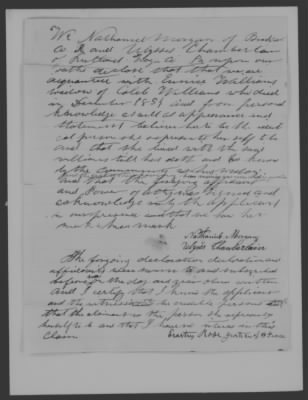 We Nathaniel Morgan of
Co Pa and Ulysses Chamberlain
of Rutland Pa upon our
oaths declare that that we are
acquainted with Eunice Williams
widow of Caleb Williams who died
in December 1889 and from personal
knowledge of said appearance and
Statement believe her to be the identi
cal person as represents her self to be
and that she lived with the said
Williams till his death and is known
by the community as his widow
and that the forgoing affidavit
and Power of attorney signed and
acknowledged by the applicant
in our presence and that she her
mark
Nathaniel Morgan
Ulysses Chamberlain
The forgoing declaration declaration and
affidavits were sworn to and subscribed
before on the day and year above written
And I certify that I know the applicant
and the witnesses to be credible persons and
that the claimant is the person she represents
herself to be and that I have no interest in this
Claim Erastus Rose Justice of the Peace